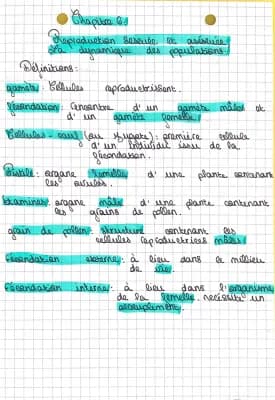 Chapitre 6:
Reproduction sexuée et asexuée
La dynamique des populations.
Définitions:
gamète: Cellules reproductrissent.
Fécondation: Rencontre d'un gamète mâle et
d'un gamète femelle.
Cellules-oeuf (ou zygote): première cellule
d'un individu issu de la
fécondation.
Pistile: organe femelle d'une plante contenant
les ovules.
Etamines: organe mâle d'une plante contenant
les grains de pollen.
grain de pollen: structure contenant les
cellules reproductrices mâles.
Fécondation externe: à lieu dans le milieu
de vie.
Fécondation interne: à lieu dans l'organisme
de la femelle. necessite un
accouplement.